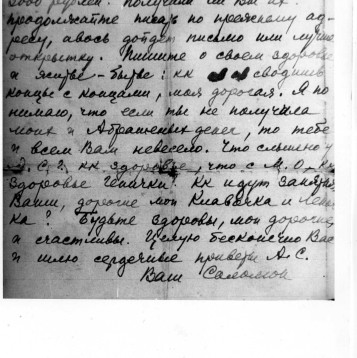 2000 рублей. Получили ли Вы их?
продолжайте писать по прежнему ад-
ресу, авось дойдет письмо или лучше
открытку. Пишите о своем здоровье
и житье-бытье: кк сводишь
концы с концами, моя дорогая. Я по-
нимаю, что если ты не получила
моих и Абрашеных денег, то тебе
и всем Вам невесело. Что слышно у
А. С.? кк здоровье, что с М.О.
здоровье Генички? Кк идут занятия
Ваши, дорогие мои Клавочка и
ка? Будьте здоровы, мои дорогие,
и счастливы. Целую бесконечно Вас
и шлю сердечные приветы А.С.
Ваш Саломон